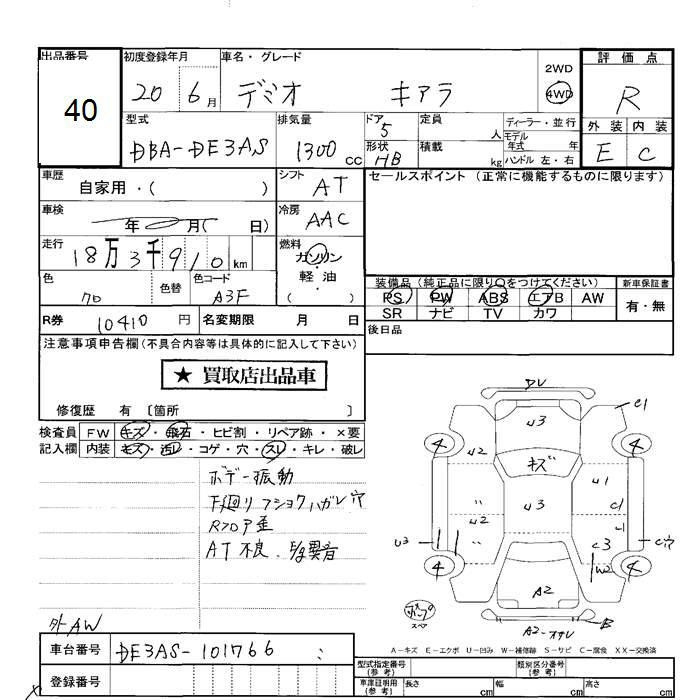 出品番号
40
初度登録年月
20 6月
車名・グレード
デミオ キアラ
2WD
4WD
評価点
R
外装 内装
E C
型式
DBA-DE3AS
排気量
1300 cc
ドア
5
形状
HB
定員 人
積載 kg
ディーラー・並行
モデル年式 年
ハンドル 左・右
車歴
自家用・( )
シフト
AT
セールスポイント (正常に機能するものに限ります)
車検
年 月( 日)
冷房
AAC
走行
18万3千910 km
燃料
ガソリン
・
軽油
( )
色
色替
色コード
A3F
装備品(純正品に限り○をつけてください)
新車保証書
PS PW ABS エアB AW
有・無
SR ナビ TV カワ
R券
10410 円
名変期限 月 日
後日品
注意事項申告欄(不具合内容等は具体的に記入して下さい)
★ 買取店出品車
修復歴 有 〔箇所 〕
検査員記入欄
FW キズ・飛石・ヒビ割・リペア跡・×要
内装 キズ・汚レ・コゲ・穴・スレ・キレ・破レ
ボデー振動
下廻りフショクハガレ穴
Rフロア歪
AT不良
異音
外AW
車台番号
DE3AS-101766
登録番号
DV
C1
U3
4
4
U2
キズ
U1
U2
U3
C1
U3
C3
C穴
W2
4
4
A2
スペア
B
A2-
A-キズ E-エクボ U-凹み W-補修跡 S-サビ C-腐食 XX-交換済
型式指定番号(参考)
類別区分番号(参考)
車庫証明用(参考) 長さ cm 幅 cm 高さ cm